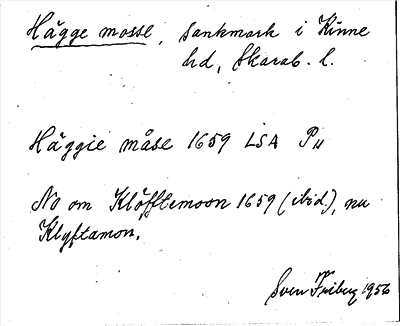 Hägge mosse, sankmark i Kinne
hd, Skarab. l.
Häggie måse 1659 LSA P11
No om Klöfftemoon 1659 (ibid.), nu
Klyftamon.
Sven Friberg 1956